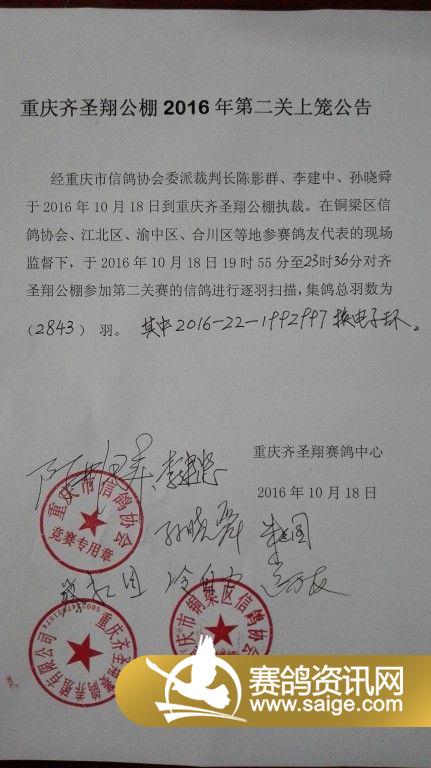 重庆齐圣翔公棚 2016 年第二关上笼公告
经重庆市信鸽协会委派裁判长陈影群、李建中、孙晓舜
于 2016 年 10 月 18 日到重庆齐圣翔公棚执裁。在铜梁区信
鸽协会、江北区、渝中区、合川区等地参赛鸽友代表的现场
监督下，于 2016 年 10 月 18 日 19 时 55 分至23时36分对齐
圣翔公棚参加第二关赛的信鸽进行逐羽扫描，集鸽总羽数为
（2843）羽。 其中2016-22-1992997换电子环。
重庆齐圣翔赛鸽中心
2016 年 10 月 18 日
孙晓舜
重庆市信鸽协会
竞赛专用章
重庆市铜梁区信鸽协会
重庆齐圣翔赛鸽养殖有限公司
赛鸽资讯网
www.saige.com